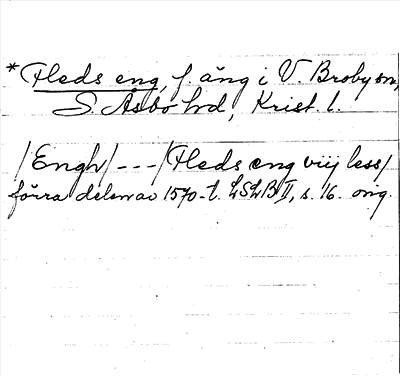 *Fleds eng, f. äng i V. Broby sn,
S. Åsbo hd, Krist. l.
/Engh/---/Fleds eng viij less/
förra delen av 1570-t. LSLB II, s. 16. orig.